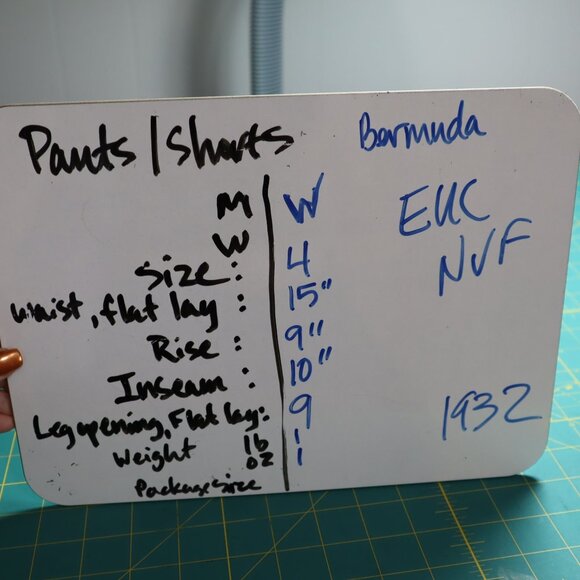 Pants/Shorts Bermuda
M W
W
EUC
Size: 4
NVF
waist, flat lay: 15"
Rise: 9"
Inseam: 10"
Leg opening, Flat lay: 9
1932
Weight lb 1
oz 1
Package size